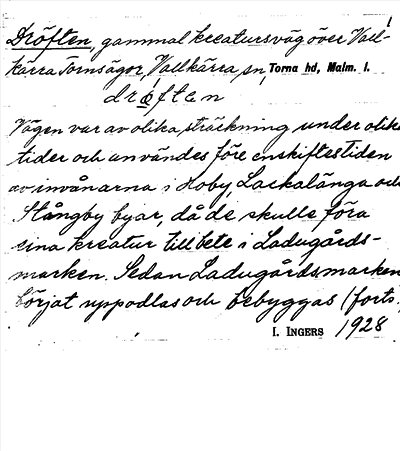 1
Dröften, gammal kreatursväg över Vall-
kärra Tornsägor, Vallkärra sn, Torna hd, Malm. l.
dröften
Vägen var av olika sträckning under olika
tider och användes före enskiftestiden
av invånarna i Hoby, Lackalänga och
Stångby byar, då de skulle föra
sina kreatur till bete i Ladugårds-
marken. Sedan Ladugårdsmarken
börjat uppodlas och bebyggas (forts.
I. INGERS 1928